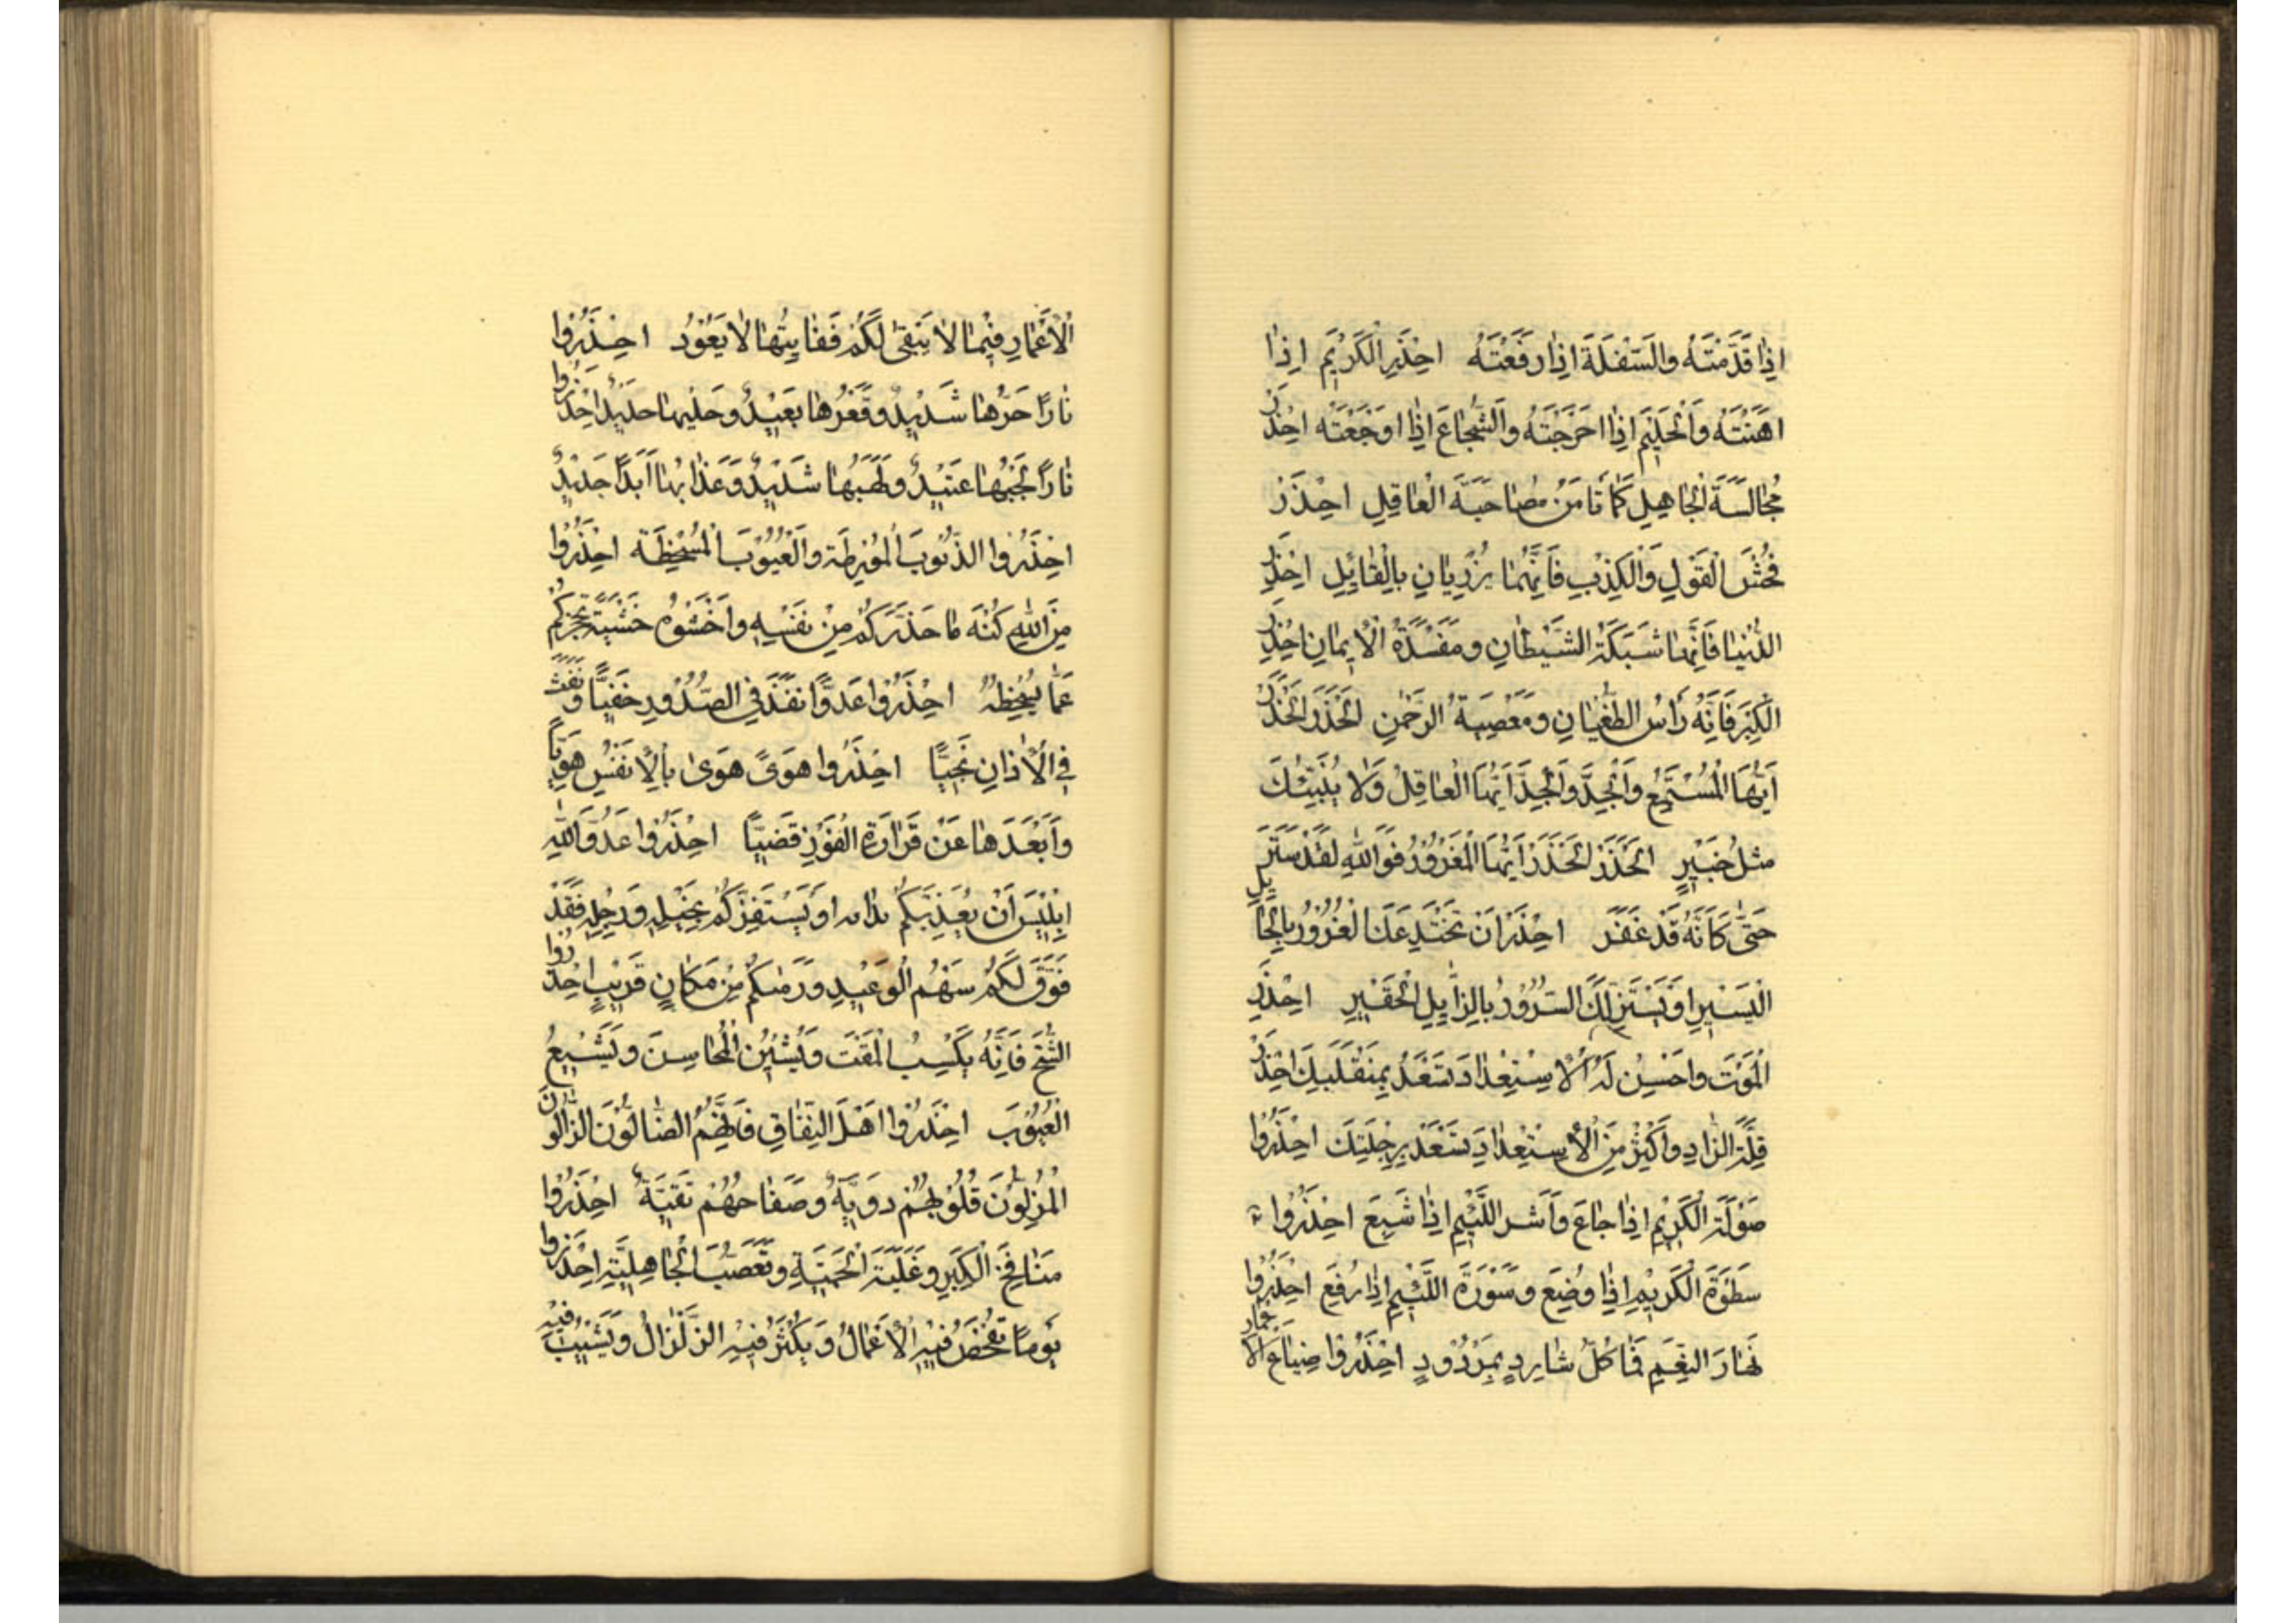 اِذٰا قَدَّمْتَهُ وَالسَّفَلَةَ اِذٰا رَفَعْتَهُ احْذَرِ الْكَرِيْمَ اِذٰا
اَهَنْتَهُ وَالْحَلِيْمَ اِذٰا احْرَجْتَهُ وَالشُّجٰاعَ اِذٰا اَوْجَعْتَه احْذَرْ
مُجٰالَسَةَ الْجٰاهِلِ كَمٰا تَأْمَنُ مُصٰاحَبَةَ الْعٰاقِلِ احْذَرْ
فُحْشَ الْقَوْلِ وَالْكِذْبِ فَاِنَّهُمٰا يُزْرِيٰانِ بِالْقٰائِلِ احْذَرِ
الدُّنْيٰا فَاِنَّهٰا شَبَكَةُ الشَّيْطٰانِ وَمَفْسَدَةُ الْاِيمٰانِ احْذَرِ
الْكِبْرَ فَاِنَّهُ رَأْسُ الطُّغْيٰانِ وَمَعْصِيَةُ الرَّحْمٰنِ الْحَذَرَ الْحَذَرَ
اَيُّهَا الْمُسْتَمِعُ وَالْجِدَّ وَالْجِدَّ اَيُّهَا الْعٰاقِلُ وَلٰا يُنَبِّئُكَ
مِثْلُ خَبِيْرٍ الْحَذَرَ الْحَذَرَ اَيُّهَا الْمَغْرُوْرُ فَوَاللّٰهِ لَقَدْ سَتَرَ
حَتّٰى كَاَنَّهُ قَدْ غَفَرَ احْذَرْ اَنْ يَخْتَدِعَكَ الْغُرُوْرُ بِالْحٰائِلِ
الْيَسِيْرِ اَوْ يَسْتَزِلَّكَ السُّرُوْرُ بِالزّٰايِلِ الْحَقِيْرِ احْذَرِ
الْمَوْتَ وَاحْسِنْ لَهُ الْاِسْتِعْدٰادَ تَسْعَدْ بِمُنْقَلَبِكَ احْذَرْ
قِلَّةَ الزّٰادِ وَاَكْثِرْ مِنَ الْاِسْتِعْدٰادِ تَسْعَدْ بِرِحْلَتِكَ احْذَرُوْا
صَوْلَةَ الْكَرِيْمِ اِذٰا جٰاعَ وَاَشَرَ اللَّئِيْمِ اِذٰا شَبِعَ احْذَرُوْا
سَطْوَةَ الْكَرِيْمِ اِذٰا وُضِعَ وَسَوْرَةَ اللَّئِيْمِ اِذٰا رُفِعَ احْذَرُوْا
نِفٰارَ النِّعَمِ فَمٰا كُلُّ شٰارِدٍ بِمَرْدُوْدٍ احْذَرُوْا ضِيٰاعَ الْاَعْمٰارِ
الْاَعْمٰارِ فِيْمٰا لٰا يَبْقىٰ لَكُمْ فَفٰايِتُهٰا لٰا يَعُوْدُ احْذَرُوْا
نٰارًا حَرُّهٰا شَدِيْدٌ وَقَعْرُهٰا بَعِيْدٌ وَحُلِيُّهٰا حَدِيْدٌ احْذَرُوْا
نٰارًا لَجَبُهٰا عَتِيْدٌ وَلَهَبُهٰا شَدِيْدٌ وَعَذٰابُهٰا اَبَدًا جَدِيْدٌ
احْذَرُوا الذُّنُوْبَ الْمُوْرِطَةَ وَالْعُيُوْبَ الْمُسْخِطَةَ احْذَرُوْا
مِنَ اللّٰهِ كُنْهَ مٰا حَذَّرَكُمْ مِنْ نَفْسِهِ وَاخْشَوْهُ خَشْيَةً تَحْجُزُكُمْ
عَمّٰا يُسْخِطُهُ احْذَرُوْا عَدُوًّا نَفَذَ فِي الصُّدُوْرِ خَفِيًّا وَنَفَثَ
فِي الْاٰذٰانِ نَجِيًّا احْذَرُوْا هَوًى هَوىٰ بِالْاَنْفُسِ هَوِيًّا
وَاَبْعَدَهٰا عَنْ قَرٰارَةِ الْفَوْزِ قَصِيًّا احْذَرُوْا عَدُوَّ اللّٰهِ
اِبْلِيْسَ اَنْ يُعْدِيَكُمْ بِدٰائِهِ اَوْ يَسْتَفِزَّكُمْ بِخَيْلِهِ وَرَجِلِهِ فَقَدْ
فَوَّقَ لَكُمْ سَهْمَ الْوَعِيْدِ وَرَمٰيكُمْ مِنْ مَكٰانٍ قَرِيْبٍ احْذَرُوْا
الشُّحَّ فَاِنَّهُ يَكْسِبُ الْمَقْتَ وَيُشِيْنُ الْمَحٰاسِنَ وَيُشِيْعُ
الْعُيُوْبَ احْذَرُوْا اَهْلَ النِّفٰاقِ فَاِنَّهُمُ الضّٰالُّوْنَ الزّٰالُّوْنَ
الْمُزِلُّوْنَ قُلُوْبُهُمْ دَوِيَّةٌ وَصِفٰاحُهُمْ نَقِيَّةٌ احْذَرُوْا
مَنٰافِخَ الْكِبْرِ وَغَلَبَةَ الْحَمِيَّةِ وَتَعَصُّبَ الْجٰاهِلِيَّةِ احْذَرُوْا
يَوْمًا تُفْحَصُ فِيْهِ الْاَعْمٰالُ وَيَكْثُرُ فِيْهِ الزِّلْزٰالُ وَيَشِيْبُ فِيْهِ